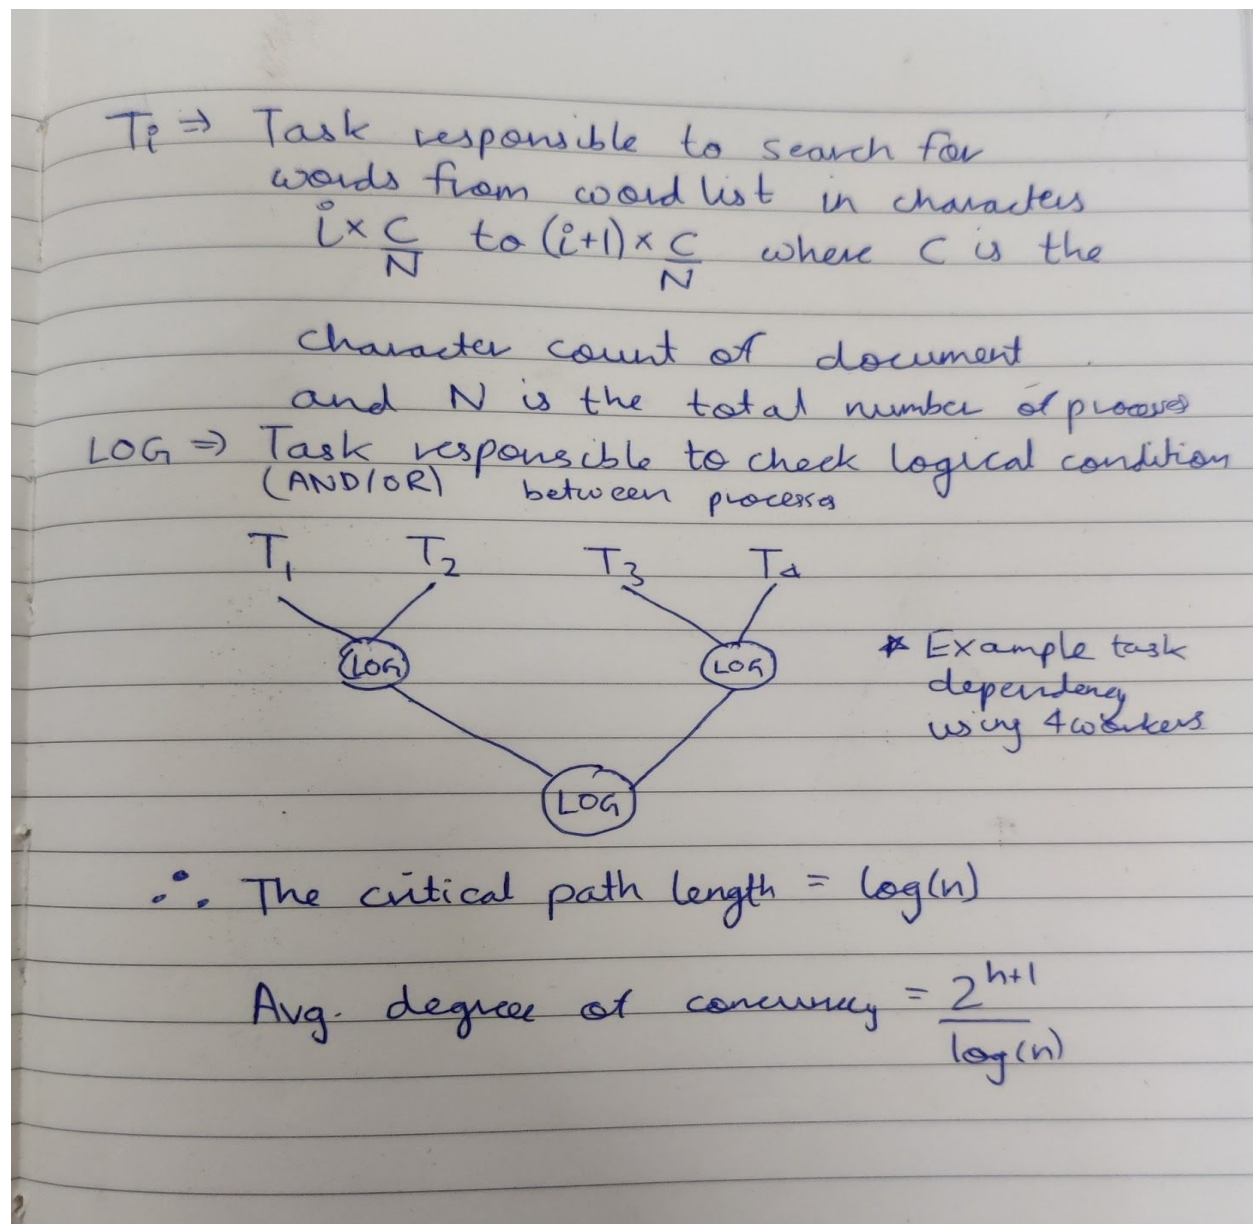 Ti ⇒ Task responsible to search for
words from word list in characters
i × C/N to (i+1) × C/N where C is the
character count of document
and N is the total number of processes
LOG ⇒ Task responsible to check logical condition
(AND/OR) between processes
T1 T2 T3 T4
LOG LOG
* Example task
dependency
using 4 workers
LOG
∴ The critical path length = log(n)
Avg. degree of concurrency = 2^(h+1) / log(n)